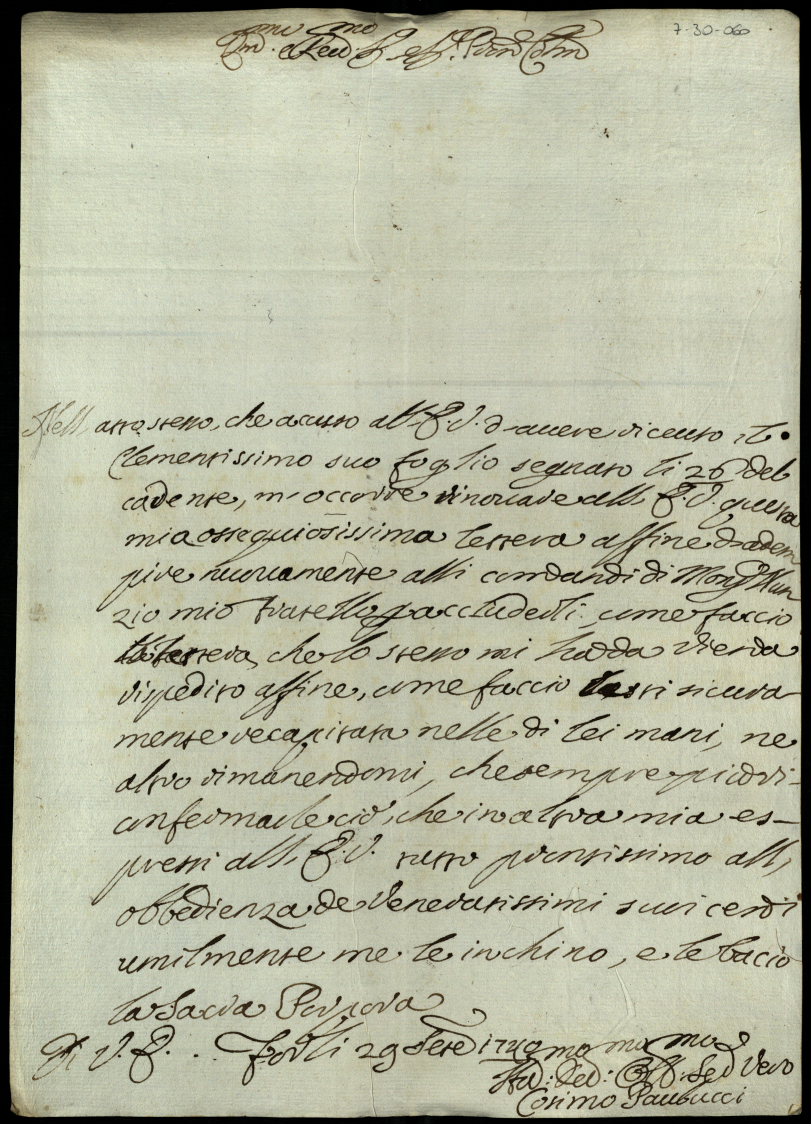 7-30-060
Em.mo e Rev.mo Sig.r e P.ron Col.mo
Nell atto stesso, che accuso all E. V. d avere ricevuto il
Clementissimo suo foglio segnato li 26 del
cadente, mi occorre rinovare all E. V. questa
mia ossequiosissima lettera affine di adem
pire nuovamente alli comandi di Mons.r Nun
zio mio Fratello, coll accluderli, come faccio
lettera, che lo stesso mi ha da Vienna
rispedito affine, come faccio resti sicura
mente recapitata nelle di lei mani, ne
altro rimanendomi, che sempre più ri-
confermarle ciò, che in altra mia es-
pressi all E. V. tutto prontissimo all
obbedienza de Veneratissimi suoi cenni
umilmente me le inchino, e le bacio
la Sacra Porpora
Di V. E. Forlì 29 Sett.e 1720
mo mo mo
Um: Dev: Obb: Ser Vero
Cosimo Paulucci